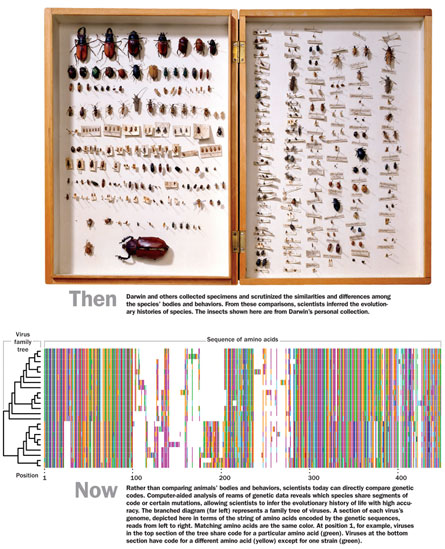 Then
Darwin and others collected specimens and scrutinized the similarities and differences among
the species' bodies and behaviors. From these comparisons, scientists inferred the evolution-
ary histories of species. The insects shown here are from Darwin's personal collection.
Virus
family
tree
Sequence of amino acids
Position
1
100
200
300
400
Now
Rather than comparing animals' bodies and behaviors, scientists today can directly compare genetic
codes. Computer-aided analysis of reams of genetic data reveals which species share segments of
code or certain mutations, allowing scientists to infer the evolutionary history of life with high accu-
racy. The branched diagram (far left) represents a family tree of viruses. A section of each virus's
genome, depicted here in terms of the string of amino acids encoded by the genetic sequences,
reads from left to right. Matching amino acids are the same color. At position 1, for example, viruses
in the top section of the tree share code for a particular amino acid (green). Viruses at the bottom
section have code for a different amino acid (yellow) except for one strain (green).